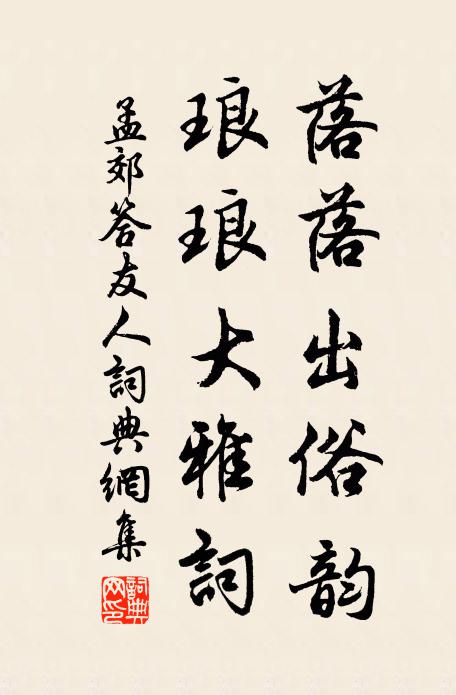 落落出俗韵
琅琅大雅詞
孟郊答友人詞典網集
詞典網印